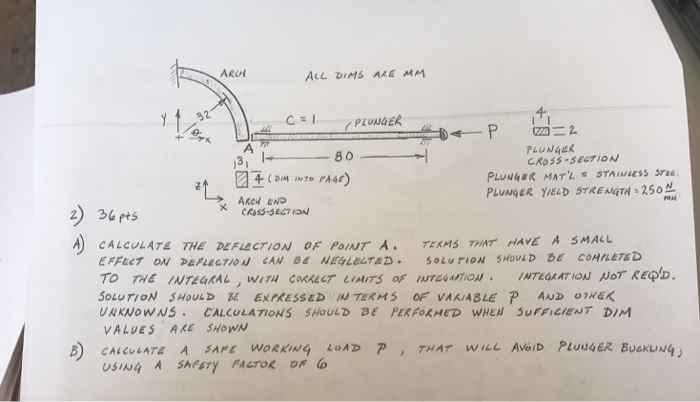 ARCH
ALL DIMS ARE MM
Y
32
θ
x
C = 1
PLUNGER
P
4
2
A
3
80
PLUNGER
CROSS-SECTION
4 (DIM INTO PAGE)
PLUNGER MAT'L = STAINLESS STEEL
PLUNGER YIELD STRENGTH = 250 N/MM
Z
X
ARCH END
CROSS-SECTION
2) 36 pts
A) CALCULATE THE DEFLECTION OF POINT A. TERMS THAT HAVE A SMALL
EFFECT ON DEFLECTION CAN BE NEGLECTED. SOLUTION SHOULD BE COMPLETED
TO THE INTEGRAL, WITH CORRECT LIMITS OF INTEGRATION. INTEGRATION NOT REQ'D.
SOLUTION SHOULD BE EXPRESSED IN TERMS OF VARIABLE P AND OTHER
UNKNOWNS. CALCULATIONS SHOULD BE PERFORMED WHEN SUFFICIENT DIM
VALUES ARE SHOWN
B) CALCULATE A SAFE WORKING LOAD P, THAT WILL AVOID PLUNGER BUCKLING,
USING A SAFETY FACTOR OF 6